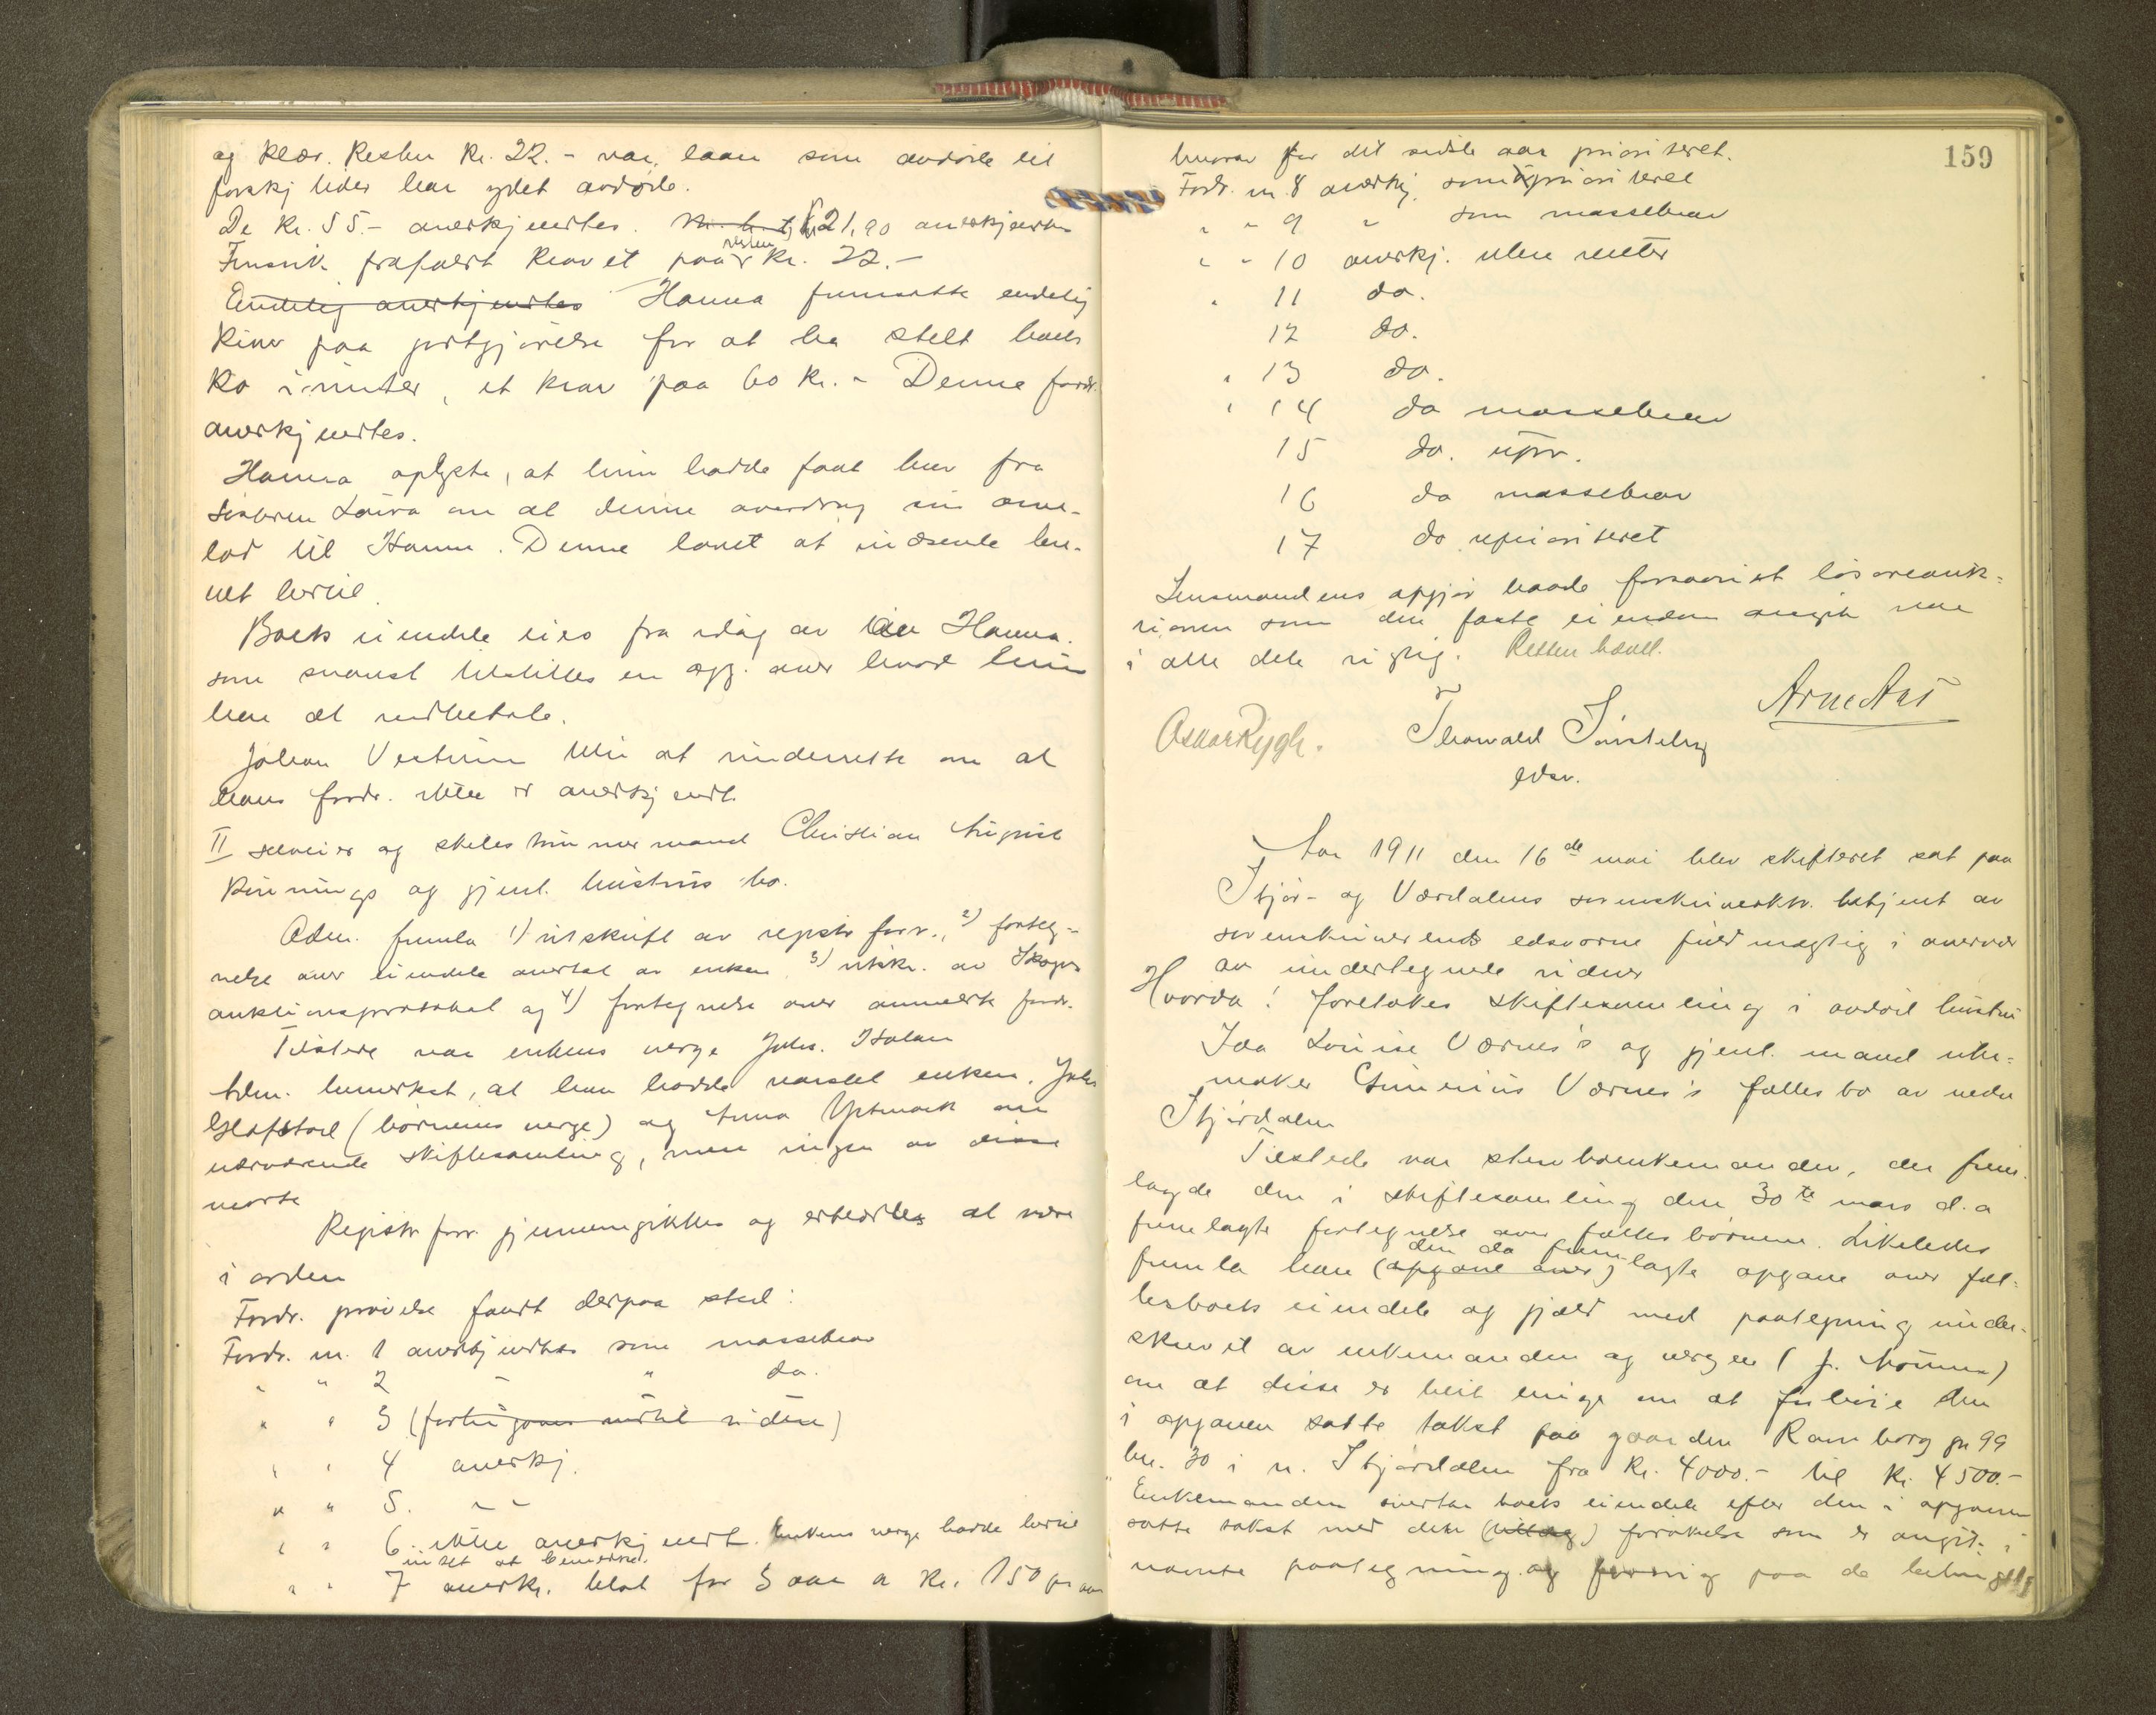 og klær. Resten kr. 22.- var laan som avdøde til
forskj tider har ydet avdøde.
De kr. 55.- anerkjendtes. kr. 21,90 anerkjendtes
Fransvik frafaldt kravet paa resten kr. 22.-
Endelig anerkjendtes Hanna fremsatte endelig
krav paa godtgjörelse for at ha stelt boets
ko i vinter, et krav paa 60 kr. - Denne fordr.
anerkjendtes.
Hanna oplyste, at hun hadde faat brev fra
søsteren Laura om at denne overdrog sin arve-
lod til Hanna. Denne lovet at indsende bre-
vet hertil.
Boets eiendele eies fra idag av Hanna.
som snarest tilstilles en opg. over hvad hun
har at indbetale.
Johan Vestrum blir at underrette om at
hans fordr. ikke er anerkjendt.
II selveier og skibstømmermand Christian August
Rinnings og gjenl. hustrus bo.
Adm. fremla 1) utskrift av registr. forr., 2) forteg-
nelse over eiendele overtat av enken 3) utskr. av Skogns
auktionsprotokol og 4) fortegnelse over anmeldte fordr.
Tilstede var enkens verge Johs. Holan
Adm. bemerket, at han hadde varslet enken, Johs
Glafstad (børnenes verge) og Anna Ystmark om
nærværende skiftesamling, men ingen av disse
mødte
Registr. forr. gjennemgikkes og erklærtes at være
i orden
Fordr. prøvelse fandt derpaa sted:
Fordr. nr. 1 anerkjendtes som massekrav
" " 2 - " do.
" " 3 (fortrigoner indtil videre)
" " 4 anerkj.
" " 5. - -
" " 6. ikke anerkjendt. Enkens verge hadde hertil
intet at bemerke.
" " 7 anerkj. blot for 3 aar a kr. 150 pr aar
159
hvorav for det sidste aar prioriteret.
Fordr. nr. 8 anerkj. som uprioriteret
" " 9 " som massekrav
" " 10 anerkj. uten renter
" 11 do.
12 do.
" 13 do.
" 14 do massekrav
15 do. upr.
16 do massekrav
17 do uprioriteret
Lensmandens opgjør baade forsaavidt løsøreauk-
sionen som den faste eiendom angik var
i alle dele rigtig. Retten hævet.
Arne Aas
Oskar Rygh. Thorvald Sörsteby
edsv.
Aar 1911 den 16de mai blev skifteret sat paa
Stjør- og Værdalens sorenskriverktr. betjent av
sorenskriverens edsvorne fuldmægtig i overvær
av undertegnede vidner
Hvorda: foretokes skiftesamling i avdød hustru
Ida Louise Værnes's og gjenl. mand uhr-
maker Simenius Værnes's fællesbo av nedre
Stjørdalen
Tilstede var sterboenkemanden, der frem-
lagde den i skiftesamling den 30te mars d.a
fremlagte fortegnelse over fællesbørnene. Likeledes
fremla han (opgave over) den da fremlagte opgave over fæl-
lesboets eiendele og gjæld med paategning under-
skrevet av enkemanden og vergen (J. Monsen)
om at disse er blit enige om at forhøie den
i opgaven satte takst paa gaarden Ramborg gn 99
bn. 30 i n. Stjørdalen fra kr. 4000.- til kr. 4500.-
Enkemanden overtar boets eiendele efter den i opgaven
satte takst med den (tillæg) forøkelse som er angit i
nævnte paategning og forøvrig paa de betingelser